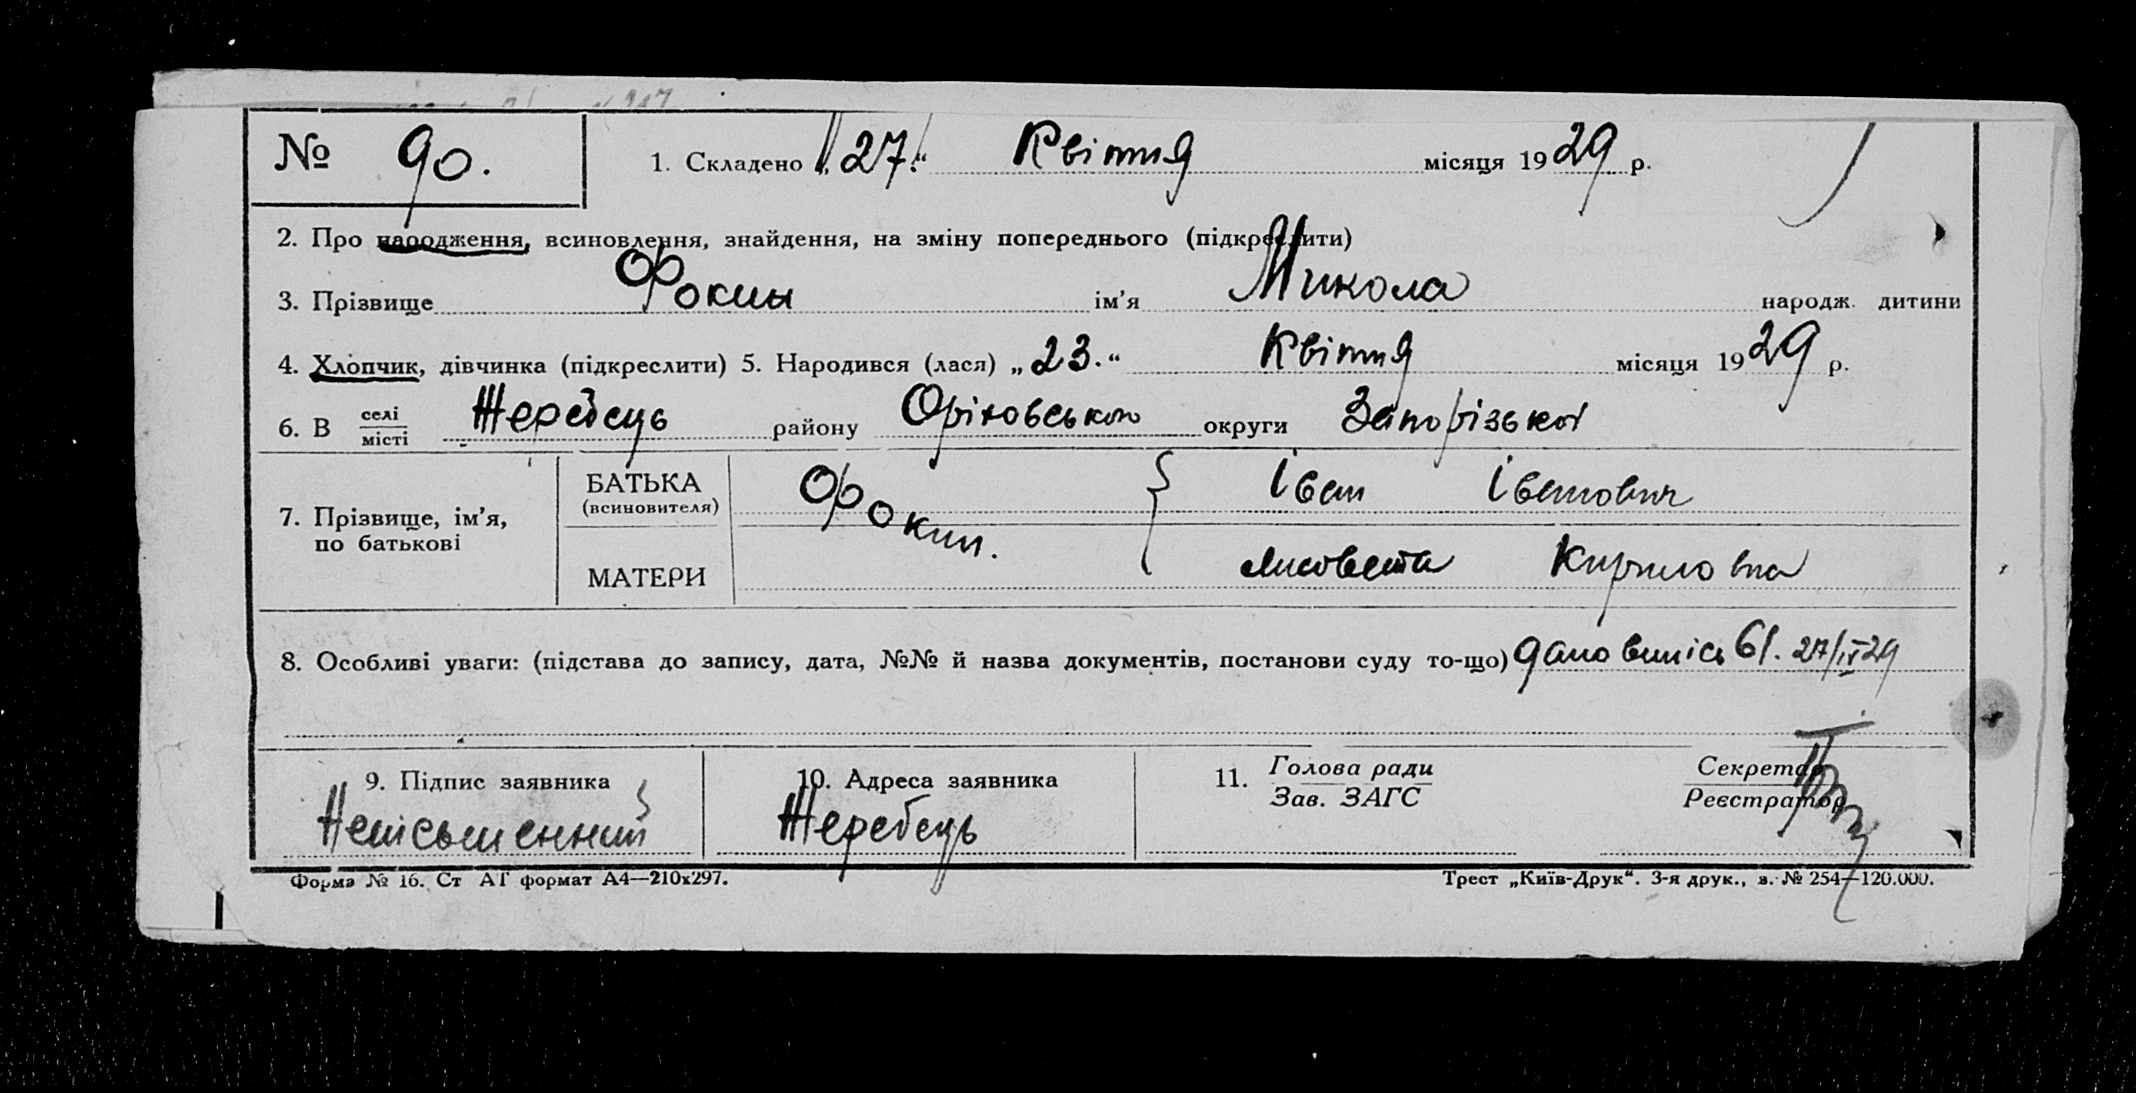 № 90. 1. Складено „27.“ Квітня місяця 1929 р.
2. Про народження, всиновлення, знайдення, на зміну попереднього (підкреслити)
3. Прізвище Фокин ім’я Микола народж. дитини
4. Хлопчик, дівчинка (підкреслити) 5. Народився (лася) „23.“ Квітня місяця 1929 р.
6. В селі
місті Жеребець району Оріховського округи Запорізької
7. Прізвище, ім’я,
по батькові
БАТЬКА
(всиновителя)
Фокин.
Іван Іванович
МАТЕРИ
Лисовета Кириловна
8. Особливі уваги: (підстава до запису, дата, №№ й назва документів, постанови суду то-що) дано випісь 61. 27/IV 29
9. Підпис заявника 10. Адреса заявника 11. Голова ради
Зав. ЗАГС
Секретар
Реєстратор
Непісьменний Жеребець
Форма № 16. Ст АТ формат А4—210х297. Трест „Київ-Друк“. 3-я друк., з. № 254—120.000.